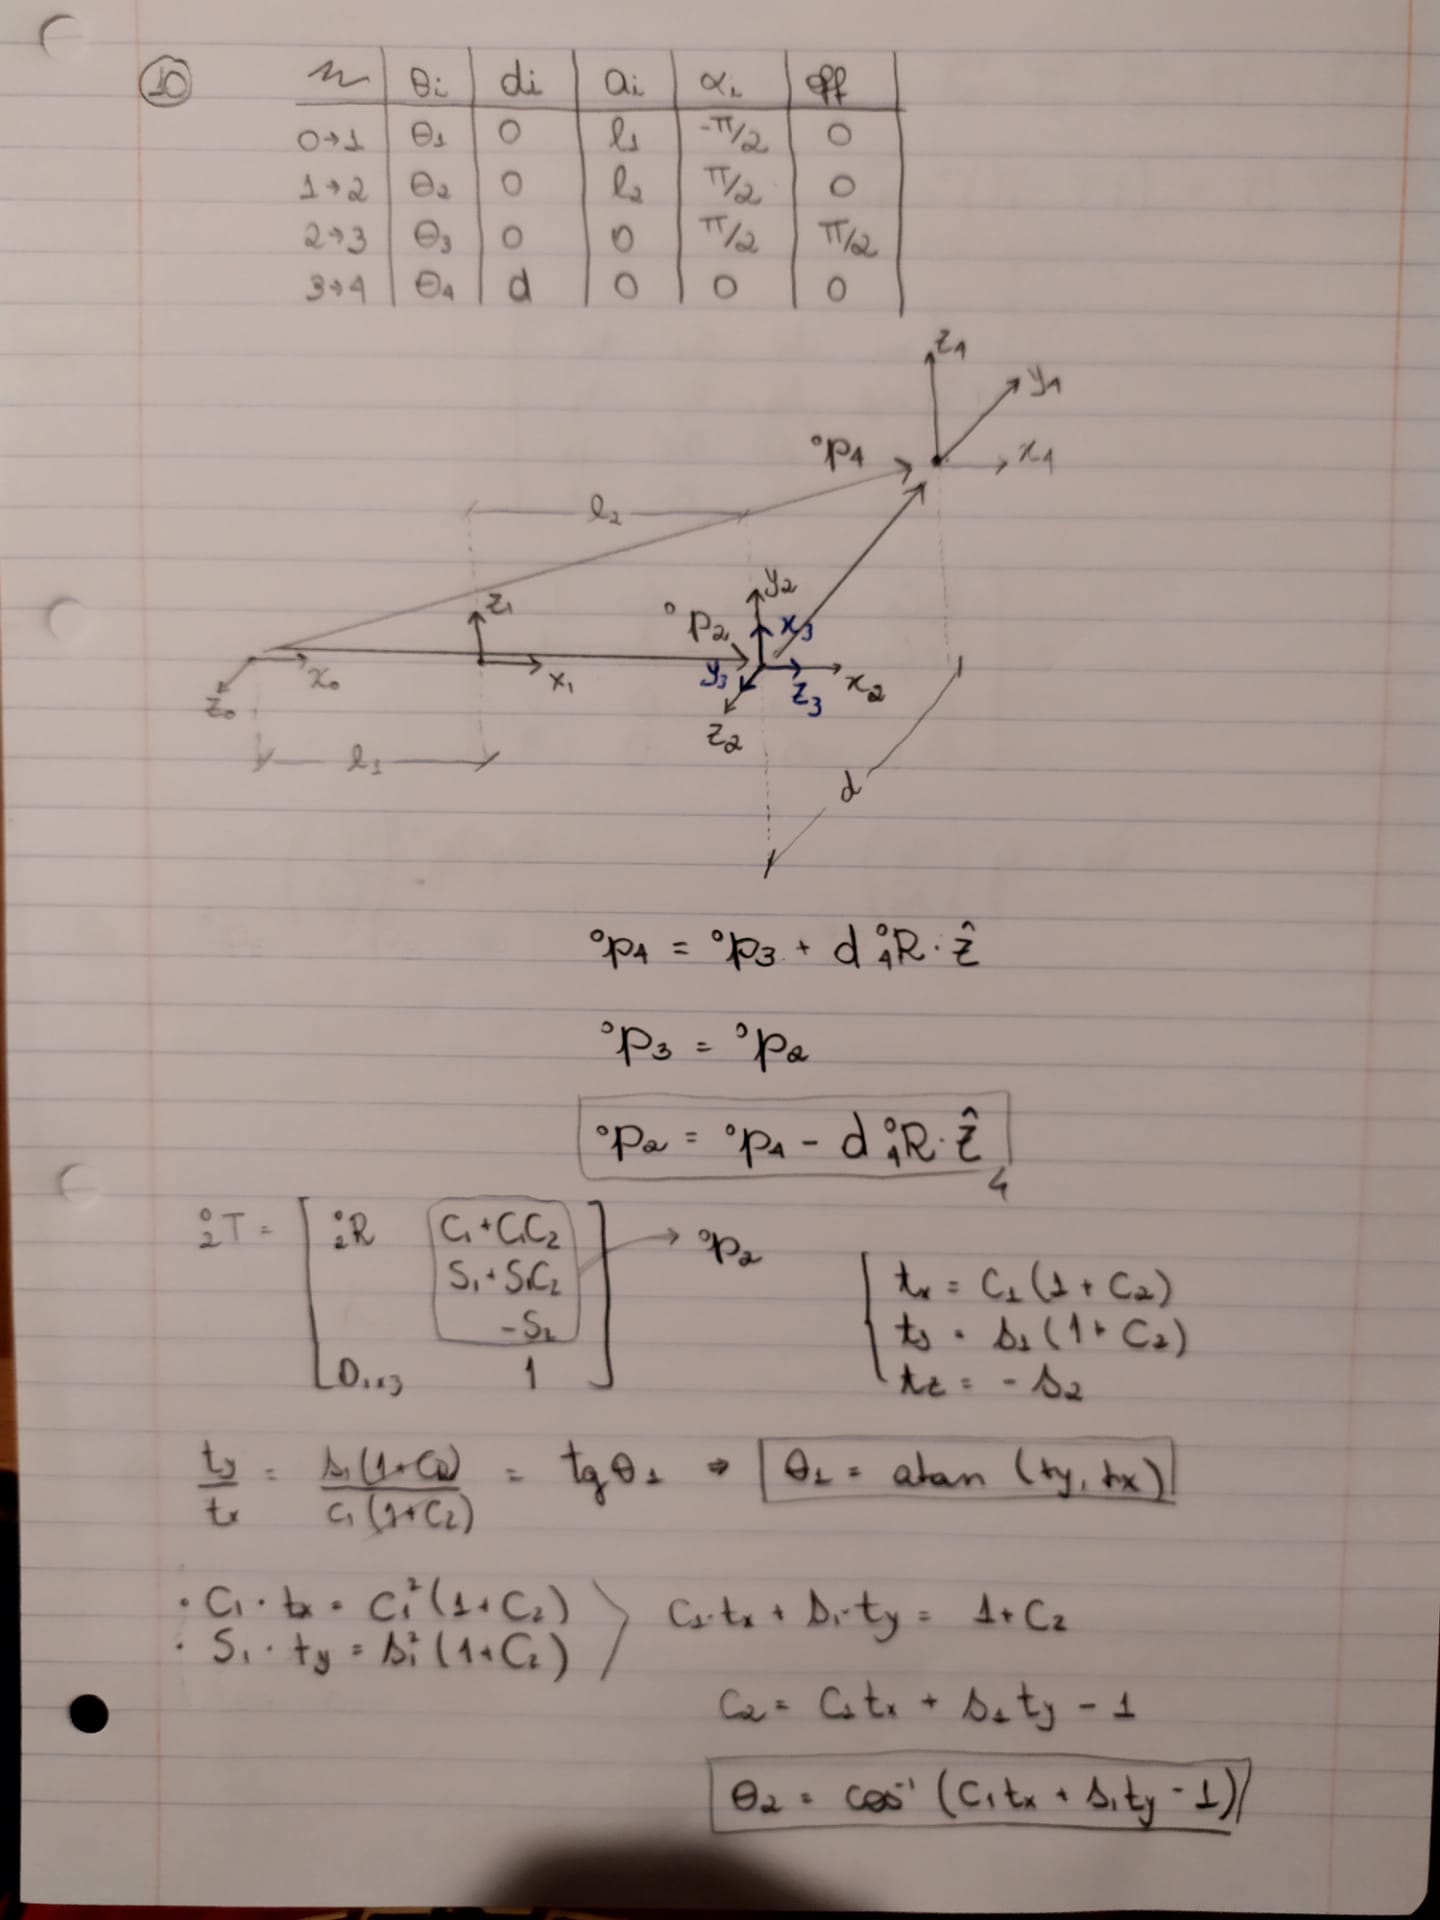 10
n | θi | di | ai | αi | off
0→1 | θ1 | 0 | l1 | -π/2 | 0
1→2 | θ2 | 0 | l2 | π/2 | 0
2→3 | θ3 | 0 | 0 | π/2 | π/2
3→4 | θ4 | d | 0 | 0 | 0
z4
y4
⁰p4
x4
l2
z1
y2
⁰p2
x3
z0
x0
x1
y3
z3
x2
z2
l1
d
⁰p4 = ⁰p3 + d ⁰₄R · ẑ
⁰p3 = ⁰p2
⁰p2 = ⁰p4 - d ⁰₄R · ẑ
4
⁰₂T = [ ⁰₂R C1+C1C2
S1+S1C2 → ⁰p2
-S2
01x3 1 ]
{ tx = C1(1+C2)
ty = s1(1+C2)
tz = -s2
ty/tx = s1(1+C2)/C1(1+C2) = tgθ1 ⇒ θ1 = atan (ty, tx)
· C1 · tx = C1²(1+C2)
· S1 · ty = s1²(1+C2) > C1·tx + s1·ty = 1+C2
C2 = C1tx + s1ty - 1
θ2 = cos⁻¹ (C1tx + s1ty - 1)